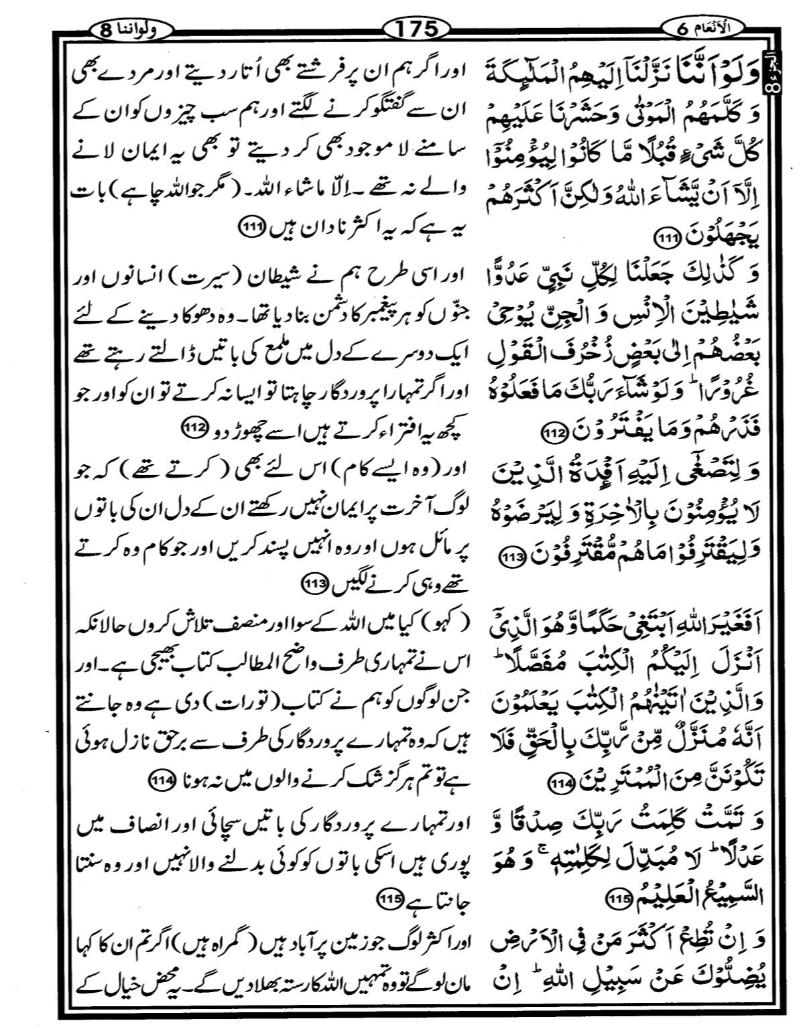 الْاَنْعَام 6
175
ولواننا 8
الجزء 8
وَلَوْ اَنَّنَا نَزَّلْنَاۤ اِلَيْهِمُ الْمَلٰٓئِكَةَ
وَ كَلَّمَهُمُ الْمَوْتٰى وَحَشَرْنَا عَلَيْهِمْ
كُلَّ شَيْءٍ قُبُلًا مَّا كَانُوْا لِيُؤْمِنُوْۤا
اِلَّاۤ اَنْ يَّشَآءَ اللّٰهُ وَلٰكِنَّ اَكْثَرَهُمْ
يَجْهَلُوْنَ 111
وَ كَذٰلِكَ جَعَلْنَا لِكُلِّ نَبِيٍّ عَدُوًّا
شَيٰطِيْنَ الْاِنْسِ وَ الْجِنِّ يُوْحِيْ
بَعْضُهُمْ اِلٰى بَعْضٍ زُخْرُفَ الْقَوْلِ
غُرُوْرًا ؕ وَلَوْ شَآءَ رَبُّكَ مَا فَعَلُوْهُ
فَذَرْهُمْ وَمَا يَفْتَرُوْنَ 112
وَ لِتَصْغٰۤى اِلَيْهِ اَفْـِٕدَةُ الَّذِيْنَ
لَا يُؤْمِنُوْنَ بِالْاٰخِرَةِ وَ لِيَرْضَوْهُ
وَلِيَقْتَرِفُوْا مَا هُمْ مُّقْتَرِفُوْنَ 113
اَفَغَيْرَ اللّٰهِ اَبْتَغِيْ حَكَمًا وَّ هُوَ الَّذِيْۤ
اَنْزَلَ اِلَيْكُمُ الْكِتٰبَ مُفَصَّلًا ؕ
وَالَّذِيْنَ اٰتَيْنٰهُمُ الْكِتٰبَ يَعْلَمُوْنَ
اَنَّهٗ مُنَزَّلٌ مِّنْ رَّبِّكَ بِالْحَقِّ فَلَا
تَكُوْنَنَّ مِنَ الْمُمْتَرِيْنَ 114
وَ تَمَّتْ كَلِمَتُ رَبِّكَ صِدْقًا وَّ
عَدْلًا ؕ لَا مُبَدِّلَ لِكَلِمٰتِهٖ ۚ وَ هُوَ
السَّمِيْعُ الْعَلِيْمُ 115
وَ اِنْ تُطِعْ اَكْثَرَ مَنْ فِي الْاَرْضِ
يُضِلُّوْكَ عَنْ سَبِيْلِ اللّٰهِ ؕ اِنْ
اور اگر ہم ان پر فرشتے بھی اُتار دیتے اور مردے بھی
ان سے گفتگو کرنے لگتے اور ہم سب چیزوں کو ان کے
سامنے لا موجود بھی کر دیتے تو بھی یہ ایمان لانے
والے نہ تھے ۔ اِلّا ماشاء اللہ۔ (مگر جو اللہ چاہے) بات
یہ ہے کہ یہ اکثر نادان ہیں 111
اور اسی طرح ہم نے شیطان (سیرت) انسانوں اور
جنّوں کو ہر پیغمبر کا دشمن بنا دیا تھا۔ وہ دھوکا دینے کے لئے
ایک دوسرے کے دل میں ملمع کی باتیں ڈالتے رہتے تھے
اور اگر تمہارا پروردگار چاہتا تو ایسا نہ کرتے تو ان کو اور جو
کچھ یہ افتراء کرتے ہیں اسے چھوڑ دو 112
اور (وہ ایسے کام) اس لئے بھی ( کرتے تھے) کہ جو
لوگ آخرت پر ایمان نہیں رکھتے ان کے دل ان کی باتوں
پر مائل ہوں اور وہ انہیں پسند کریں اور جو کام وہ کرتے
تھے وہی کرنے لگیں 113
( کہو) کیا میں اللہ کے سوا اور منصف تلاش کروں حالانکہ
اس نے تمہاری طرف واضح المطالب کتاب بھیجی ہے۔ اور
جن لوگوں کو ہم نے کتاب (تورات) دی ہے وہ جانتے
ہیں کہ وہ تمہارے پروردگار کی طرف سے برحق نازل ہوئی
ہے تو تم ہرگز شک کرنے والوں میں نہ ہونا 114
اور تمہارے پروردگار کی باتیں سچائی اور انصاف میں
پوری ہیں اسکی باتوں کو کوئی بدلنے والا نہیں اور وہ سنتا
جانتا ہے 115
اور اکثر لوگ جو زمین پر آباد ہیں (گمراہ ہیں) اگر تم ان کا کہا
مان لو گے تو وہ تمہیں اللہ کا رستہ بھلا دیں گے۔ یہ محض خیال کے